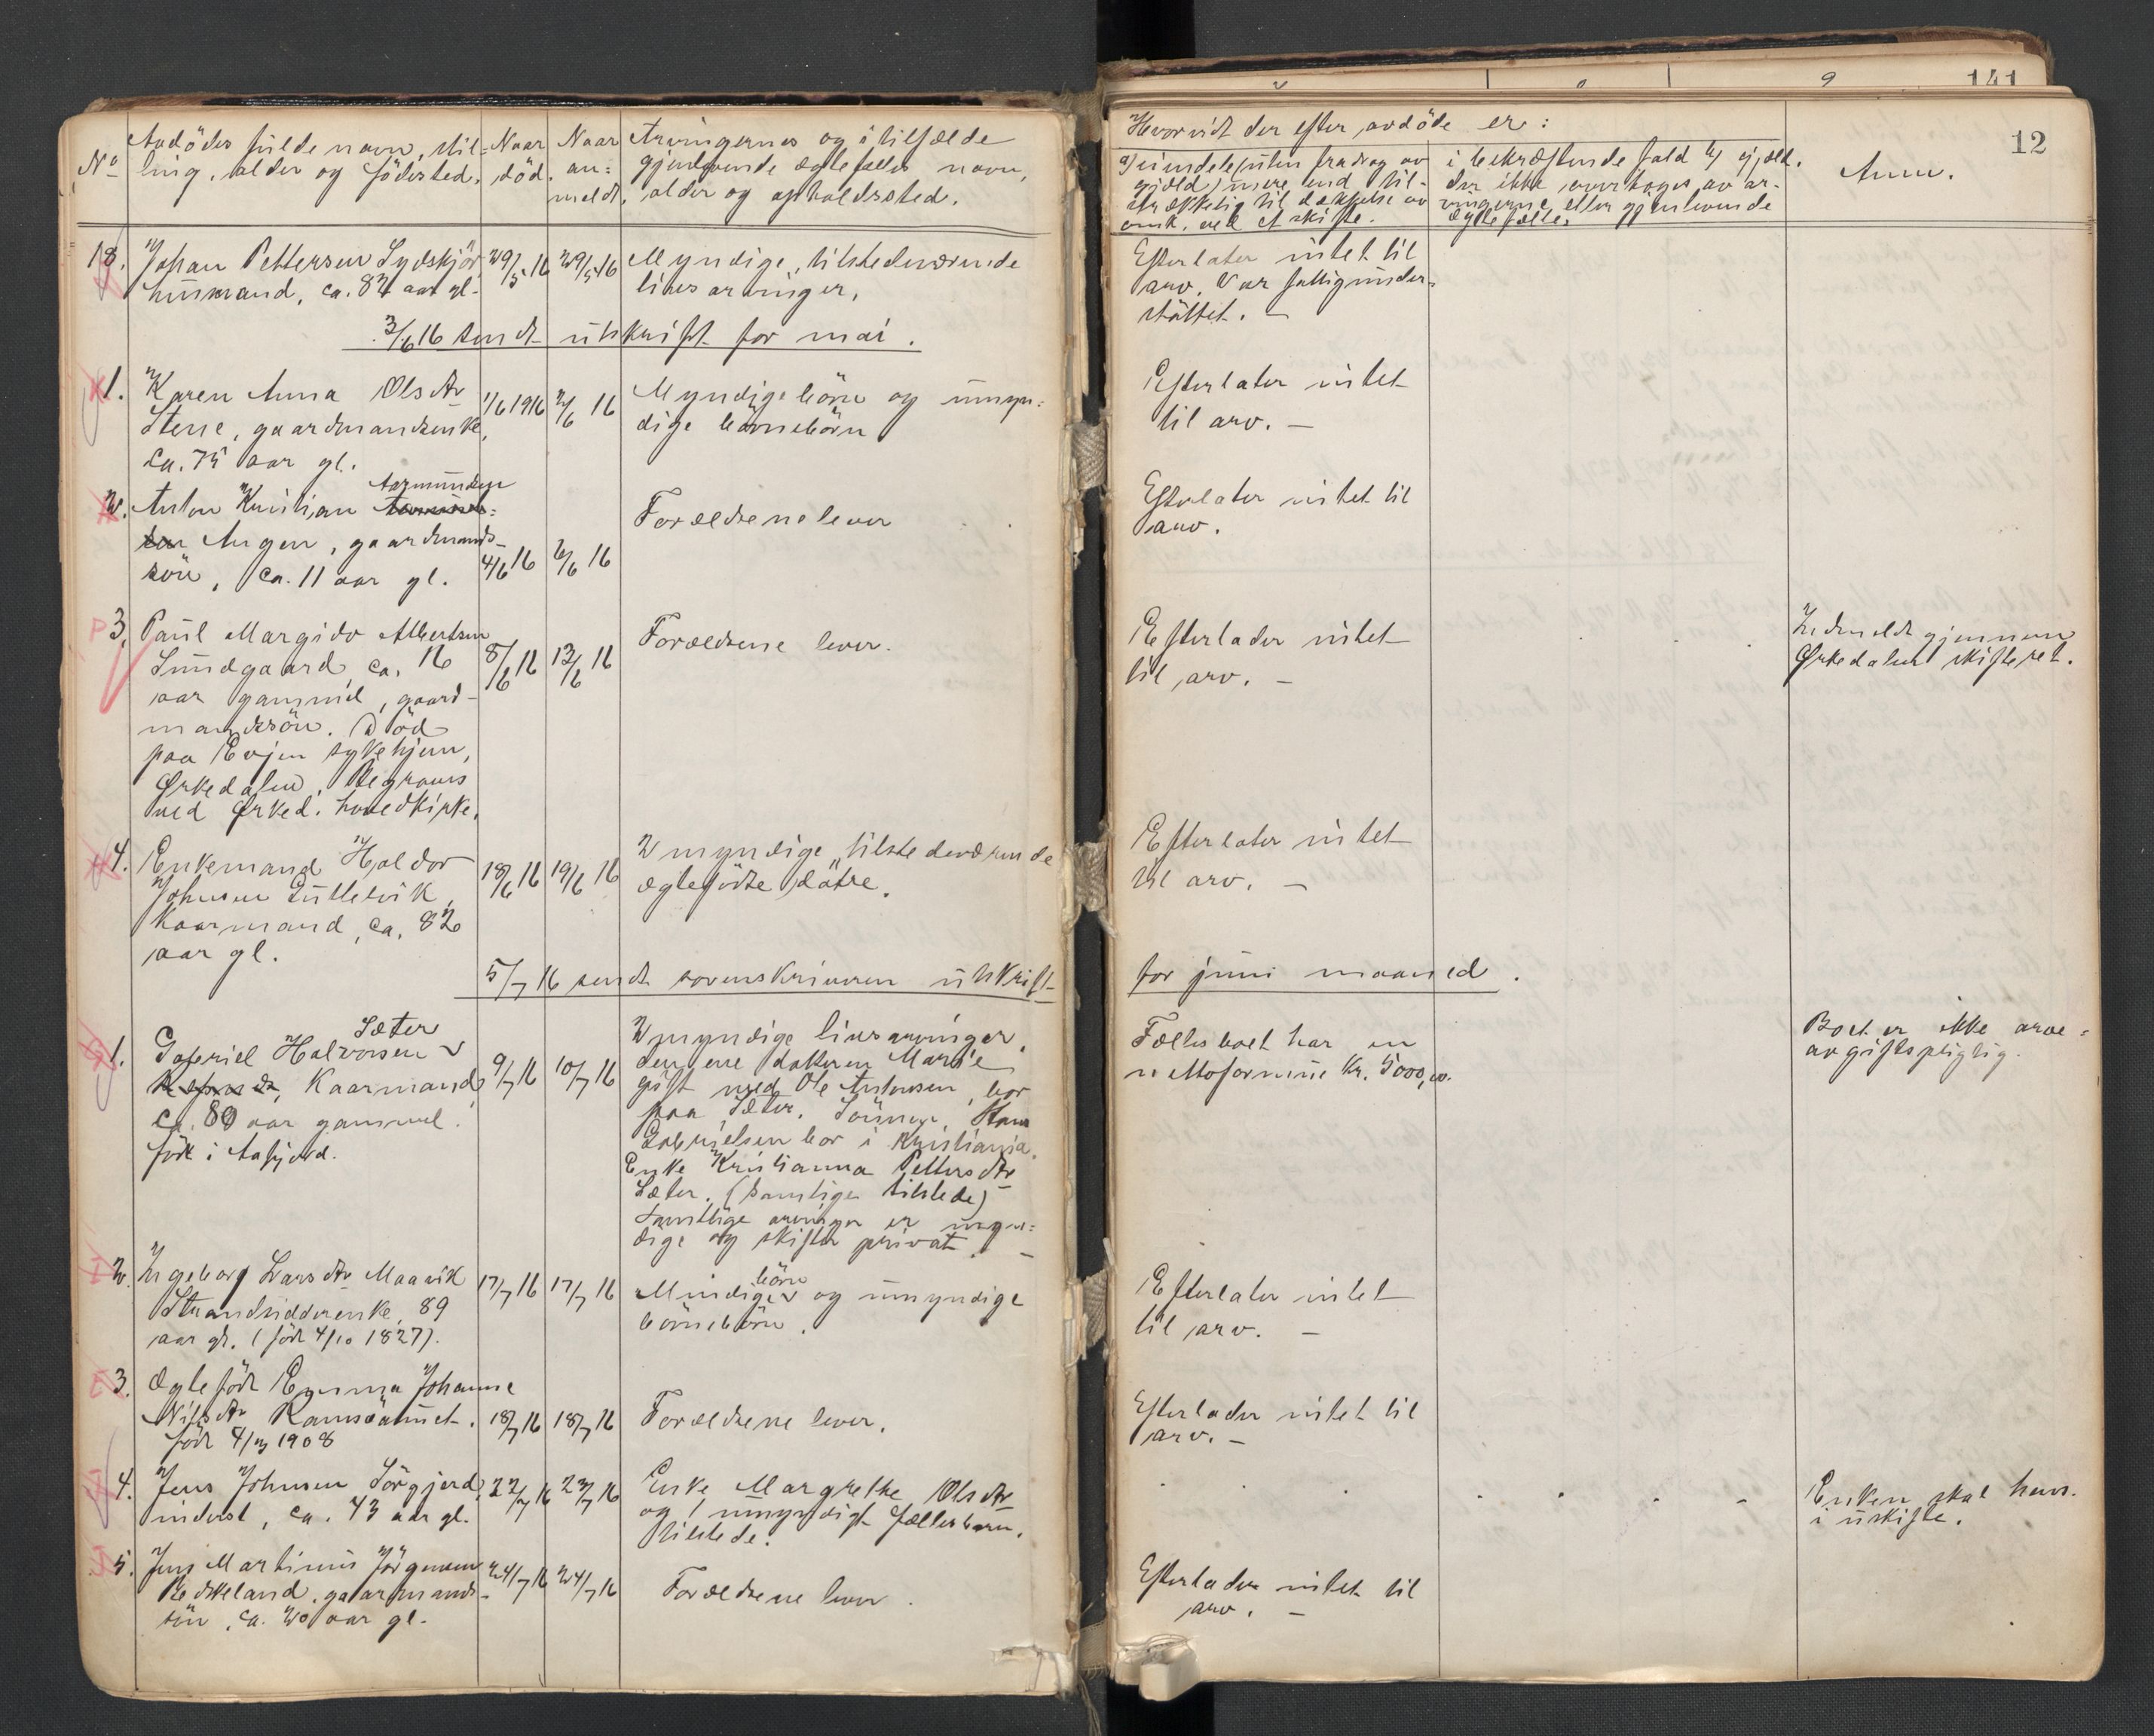 141
12
No
Avdödes fulde navn, stil=
ling, alder og födested.
Naar
död.
Naar
an=
meldt.
Arvingernes og i tilfælde
gjenlevende ægtefælles navn,
alder og opholdssted.
Hvorvidt der efter avdöde er:
a) eiendele (uten fradrag av
gjæld) mere end til-
strækkelig til dækkelse av
omk. ved et skifte.
i bekræftende fald b) gjæld,
der ikke overtages av ar-
vingerne eller gjenlevende
ægtefælle.
Anm.
18.
Johan Pettersen Sydskjör
husmand, ca. 84 aar gl.
29/5 16
29/5 16
Myndige, tilstedeværende
livsarvinger.
Efterlater intet til
arv. Var fattigunder-
stöttet. –
3/6 16 sendt utskrift for mai.
1.
Karen Anna Olsdtr
Stene, gaardmandsenke,
ca. 75 aar gl.
1/6 1916
2/6 16
Myndige börn og umyn=
dige börnebörn
Efterlater intet
til arv. –
2.
Aarmundsen
Anton Kristian
Angen, gaardmands-
sön, ca. 11 aar gl.
4/6 16
6/6 16
Forældrene lever
Efterlater intet til
arv.
3.
Paul Margido Albertsen
Sundgaard, ca. 16
aar gammel, gaard-
mandssön. Död
paa Evjen sykehjem,
Ørkedalen. Begraves
ved Ørked. hovedkirke.
8/6 16
13/6 16
Forældrene lever.
Efterlader intet
til arv. –
Indmeldt gjennem
Ørkedalens skifteret.
4.
Enkemand Haldor
Johnsen Sulletvik,
Kaarmand, ca. 82
aar gl.
18/6 16
19/6 16
2 myndige, tilstedeværende
ægtefödte dötre.
Efterlater intet
til arv. –
5/7 16 sendt sorenskriveren utskrift
for juni maaned.
1.
Sæter
Gabriel Halvorsen
Kaarmand,
ca. 80 aar gammel.
födt i Aafjord.
9/7 16
10/7 16
2 myndige livsarvinger.
den ene datteren Marie
gift med Ole Antonsen, bor
paa Sæter. Sönnen, Hans
Gabrielsen bor i Kristiania.
Enke Kristianna Pettersdtr
Sæter. (samtlige tilstede)
Samtlige arvinger er myn=
dige og skifter privat. –
Fællesboet har en
nettoformue Kr. 5000,00.
Boet er ikke arve=
avgiftspligtig.
2.
Ingeborg Larsdtr Maavik
Strandsidderenke, 89
aar gl. (födt 4/10 1827).
17/7 16
17/7 16
börn
Mindige og umyndige
börnebörn.
Efterlater intet
til arv. –
3.
Ægtefödt Emma Johanne
Nilsdtr Ramsöaunet.
födt 4/12 1908
18/7 16
18/7 16
Forældrene lever.
Efterlader intet til
arv. –
4.
Jens Johnsen Sörgjerd,
inderst, ca. 43 aar gl.
22/7 16
23/7 16
Enke Margrethe Olsdtr
og 1 umyndigt fællesbarn.
tilstede.
Enken skal hens.
i uskifte.
5.
Jens Martinus Jörgensen
Eidskeland, gaarmands-
sön, ca. 20 aar gl.
24/7 16
24/7 16
Forældrene lever.
Efterlader intet til
arv. –